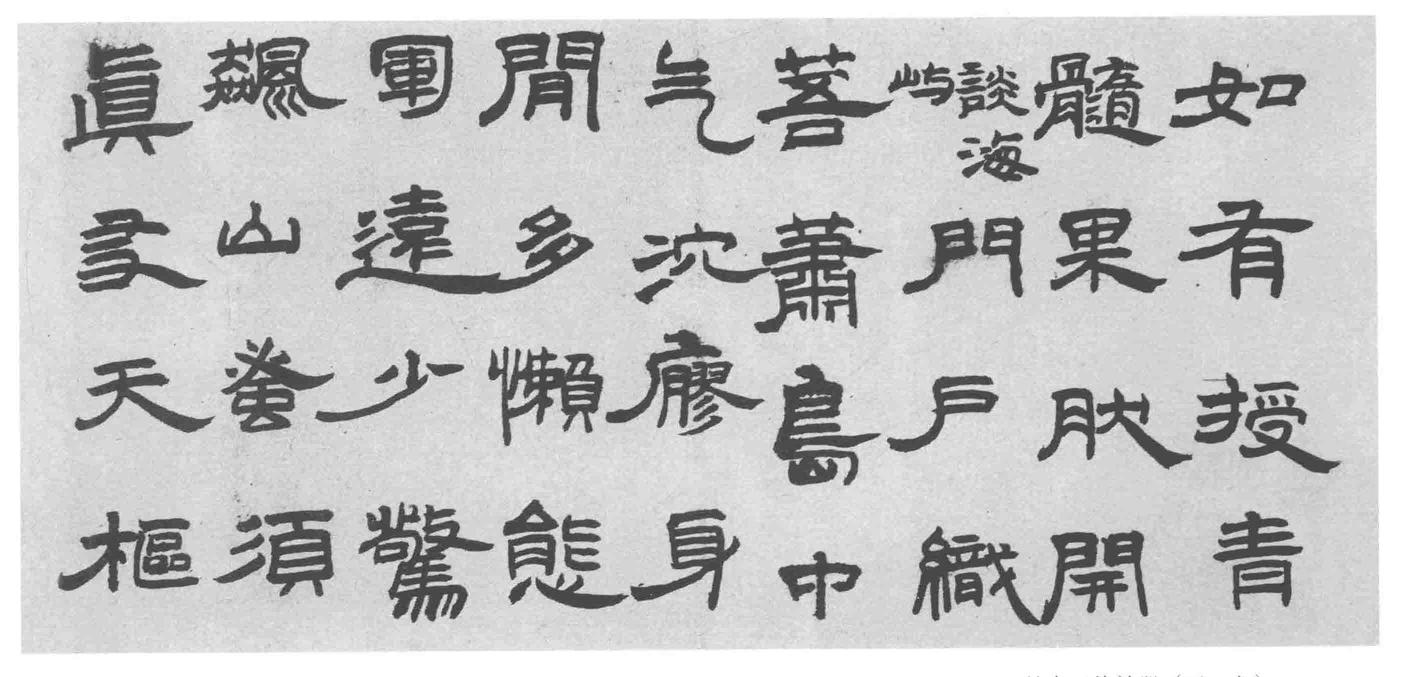 如有授青
髓果肰開
談海
嶼
門戶織
菩蕭島中
气泬廖身
閒多懶態
軍遠少驚
飆山須
眞天樞